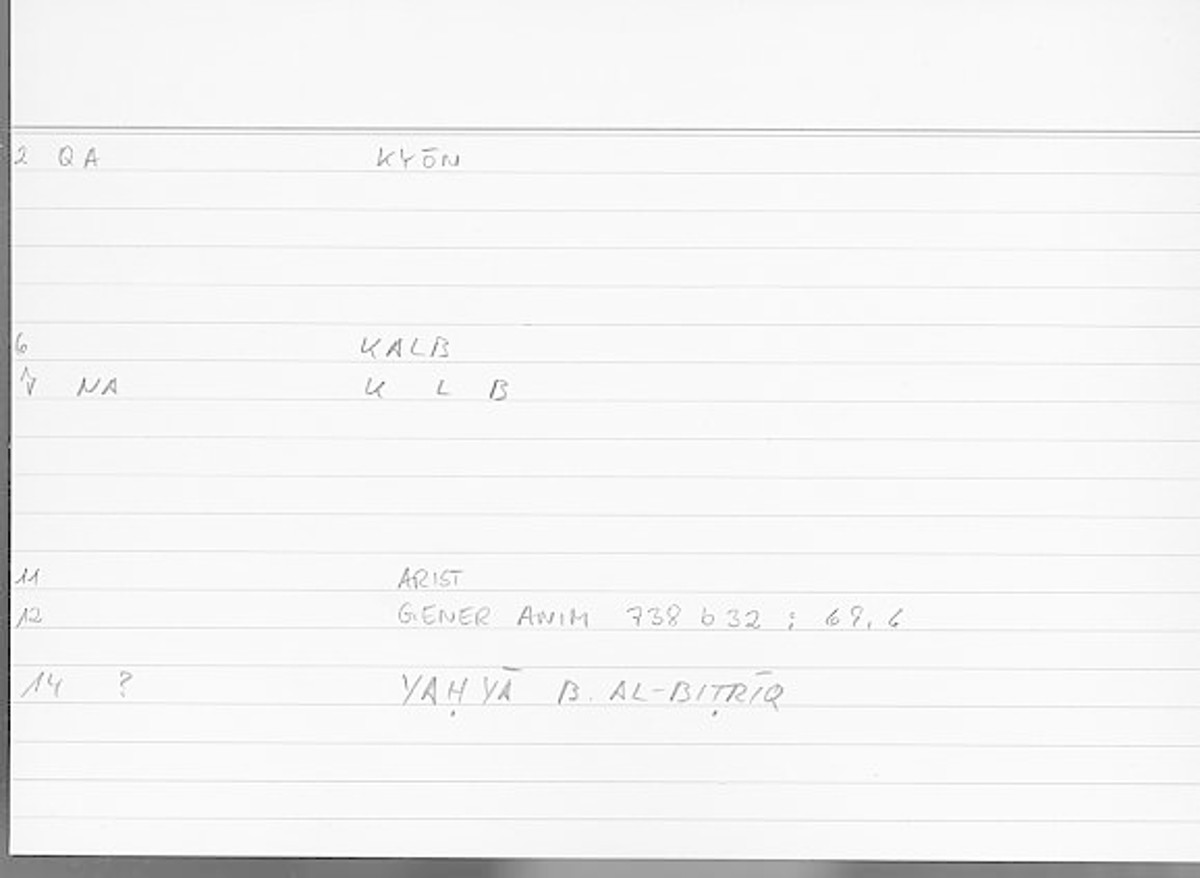 2 QA KYŌN
6 KALB
7 NA K L B
11 ARIST
12 GENER ANIM 738 b 32 ; 69, 6
14 ? YAḤYĀ B. AL-BIṬRĪQ